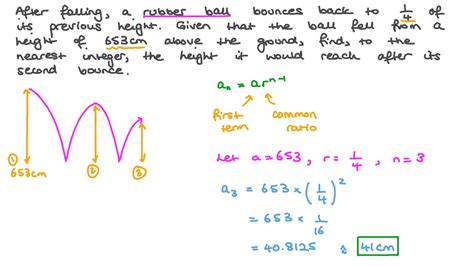 After falling, a rubber ball bounces back to 1/4 of
its previous height. Given that the ball fell from a
height of 653cm above the ground, find, to the
nearest integer, the height it would reach after its
second bounce.
aₙ = arⁿ⁻¹
first common
term ratio
① ② ③
653cm
Let a = 653, r = 1/4, n = 3
a₃ = 653 × (1/4)²
= 653 × 1/16
= 40.8125 ≈ 41cm